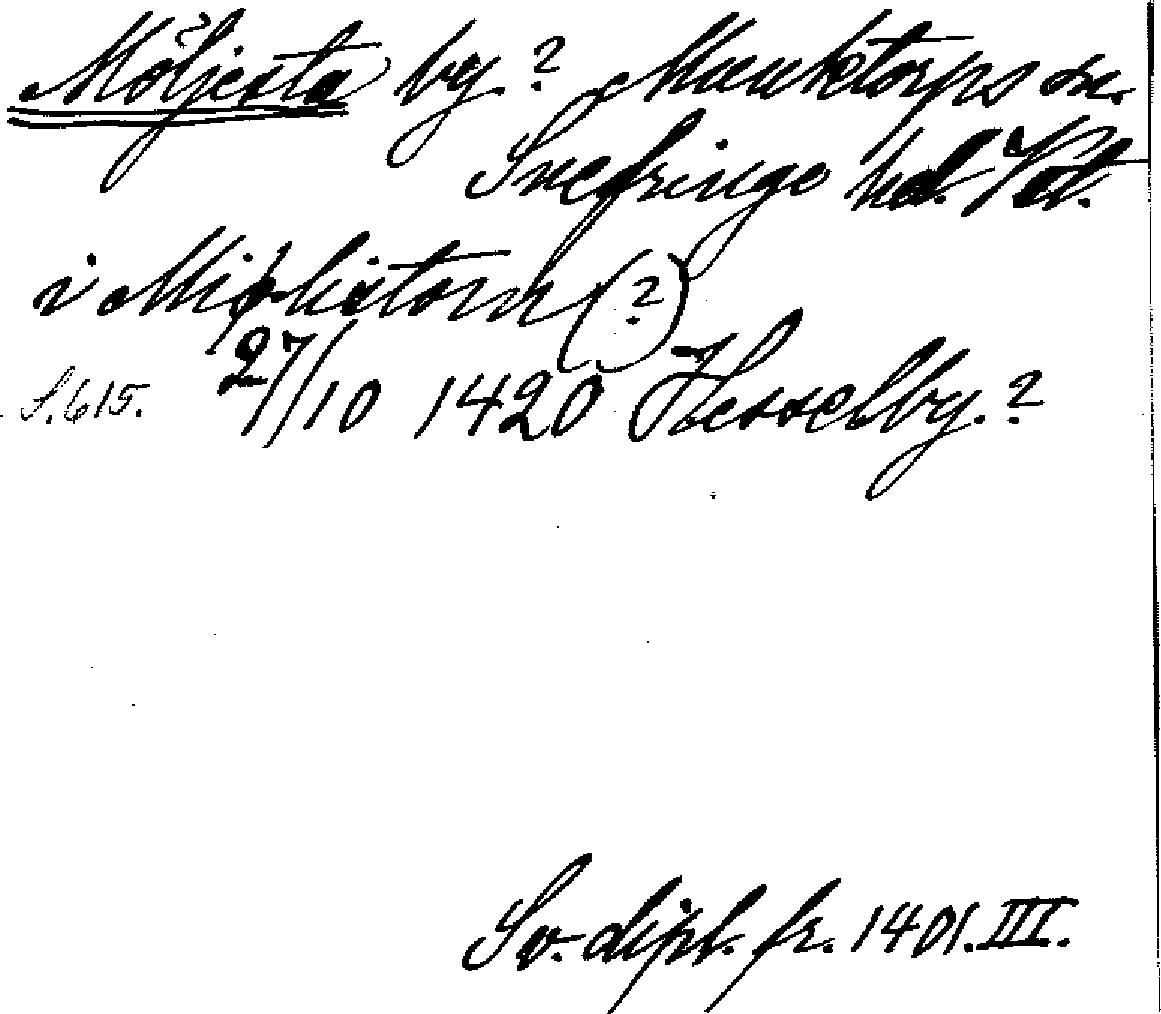 Möljesta by? Munktorps sn.
Snefringe hd. Vstl.
i (?)
S. 615. 27/10 1420 Hesselby.?
Sv. dipl. fr. 1401. III.